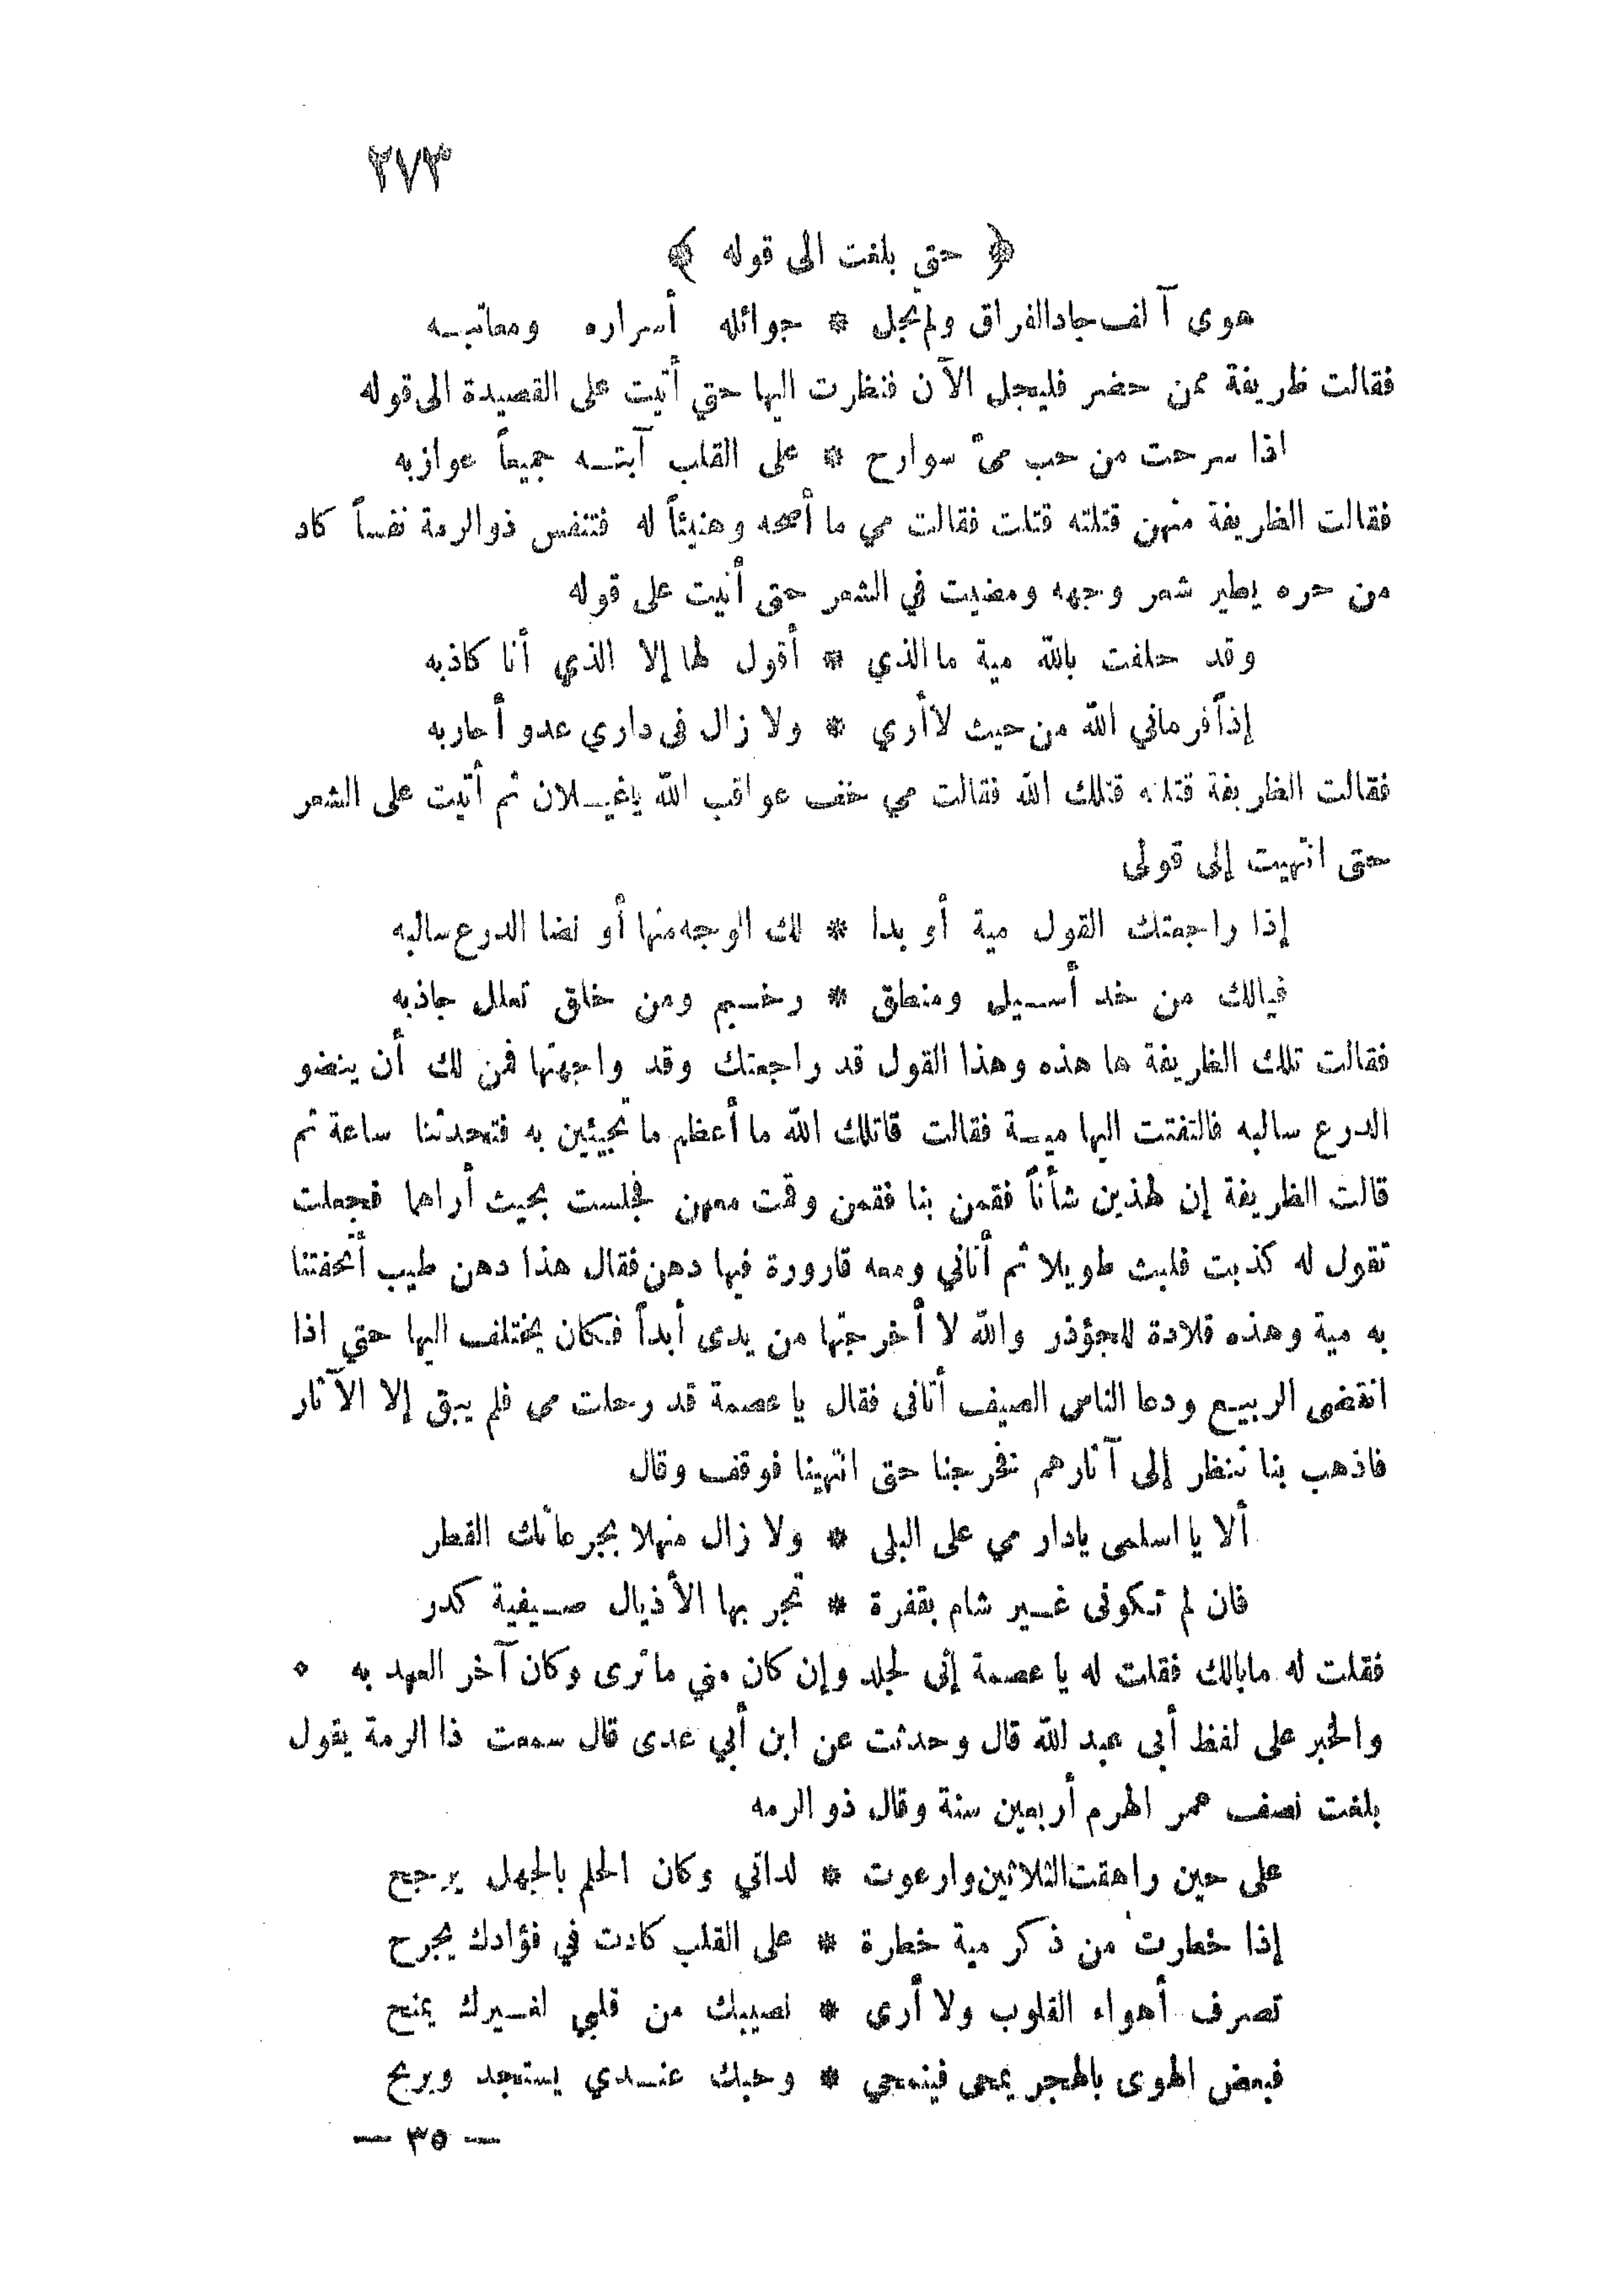 ٢٧٣
﴿ حتى بلغت الى قوله ﴾
هوى آ لف جاد الفراق ولم تجل * جوائله أسراره ومعاتبـه
فقالت ظريفة ممن حضر فليجل الآن فنظرت اليها حتي أتيت على القصيدة الى قوله
اذا سرحت من حب ميّ سوارح * على القلب آبتـه جميعاً عوازبه
فقالت الظريفة منهن قتلته قتلت فقالت مي ما أصحه وهنيئاً له فتنفس ذو الرمة نفساً كاد
من حره يطير شعر وجهه ومضيت في الشعر حتى أتيت على قوله
وقد حلفت بالله مية ما الذي * أقول لها إلا الذي أنا كاذبه
إذاً فرماني الله من حيث لا أري * ولا زال فى داري عدو أحاربه
فقالت الظريفة قتلته قتلك الله فقالت مي خف عواقب الله ياغيـلان ثم أتيت على الشعر
حتى انتهيت إلى قولى
إذا راجعتك القول مية أو بدا * لك الوجه منها أو نضا الدرع سالبه
فيالك من خد أسـيل ومنطق * رخـيم ومن خلق تعلل جاذبه
فقالت تلك الظريفة ها هذه وهذا القول قد راجعتك وقد واجهتها فمن لك أن ينضو
الدرع سالبه فالتفتت اليها ميـة فقالت قاتلك الله ما أعظم ما تجيئين به فتحدثنا ساعة ثم
قالت الظريفة إن لهذين شأناً فقمن بنا فقمن وقمت معهن فجلست بحيث أراهما فجعلت
تقول له كذبت فلبث طويلا ثم أتاني ومعه قارورة فيها دهن فقال هذا دهن طيب أتحفتنا
به مية وهذه قلادة للجؤذر والله لا أخرجتها من يدى أبداً فكان يختلف اليها حتي اذا
انقضى الربيـع ودعا الناس الصيف أتانى فقال يا عصمة قد رحلت مي فلم يبق إلا الآثار
فاذهب بنا ننظر إلى آثارهم فخرجنا حتى انتهينا فوقف وقال
ألا يا اسلمى يادار مي على البلى * ولا زال منهلا بجرعائك القطر
فان لم تكونى غـير شام بقفرة * تجر بها الأذيال صـيفية كدر
فقلت له مابالك فقلت له يا عصمة إنى لجلد وإن كان مني ما ترى وكان آخر العهد به ٥
والخبر على لفظ أبى عبد الله قال وحدثت عن ابن أبي عدى قال سمعت ذا الرمة يقول
بلغت نصف عمر الهرم أربعين سنة وقال ذو الرمه
على حين راهقت الثلاثين وارعوت * لداتي وكان الحلم بالجهل يرجح
إذا خطرت من ذكر مية خطرة * على القلب كادت في فؤادك يجرح
تصرف أهواء القلوب ولا أرى * نصيبك من قلبي لغـيرك يمنح
فبعض الهوى بالهجر يمحى فينمحي * وحبك عنـدي يستجد ويربح
— ٣٥ —